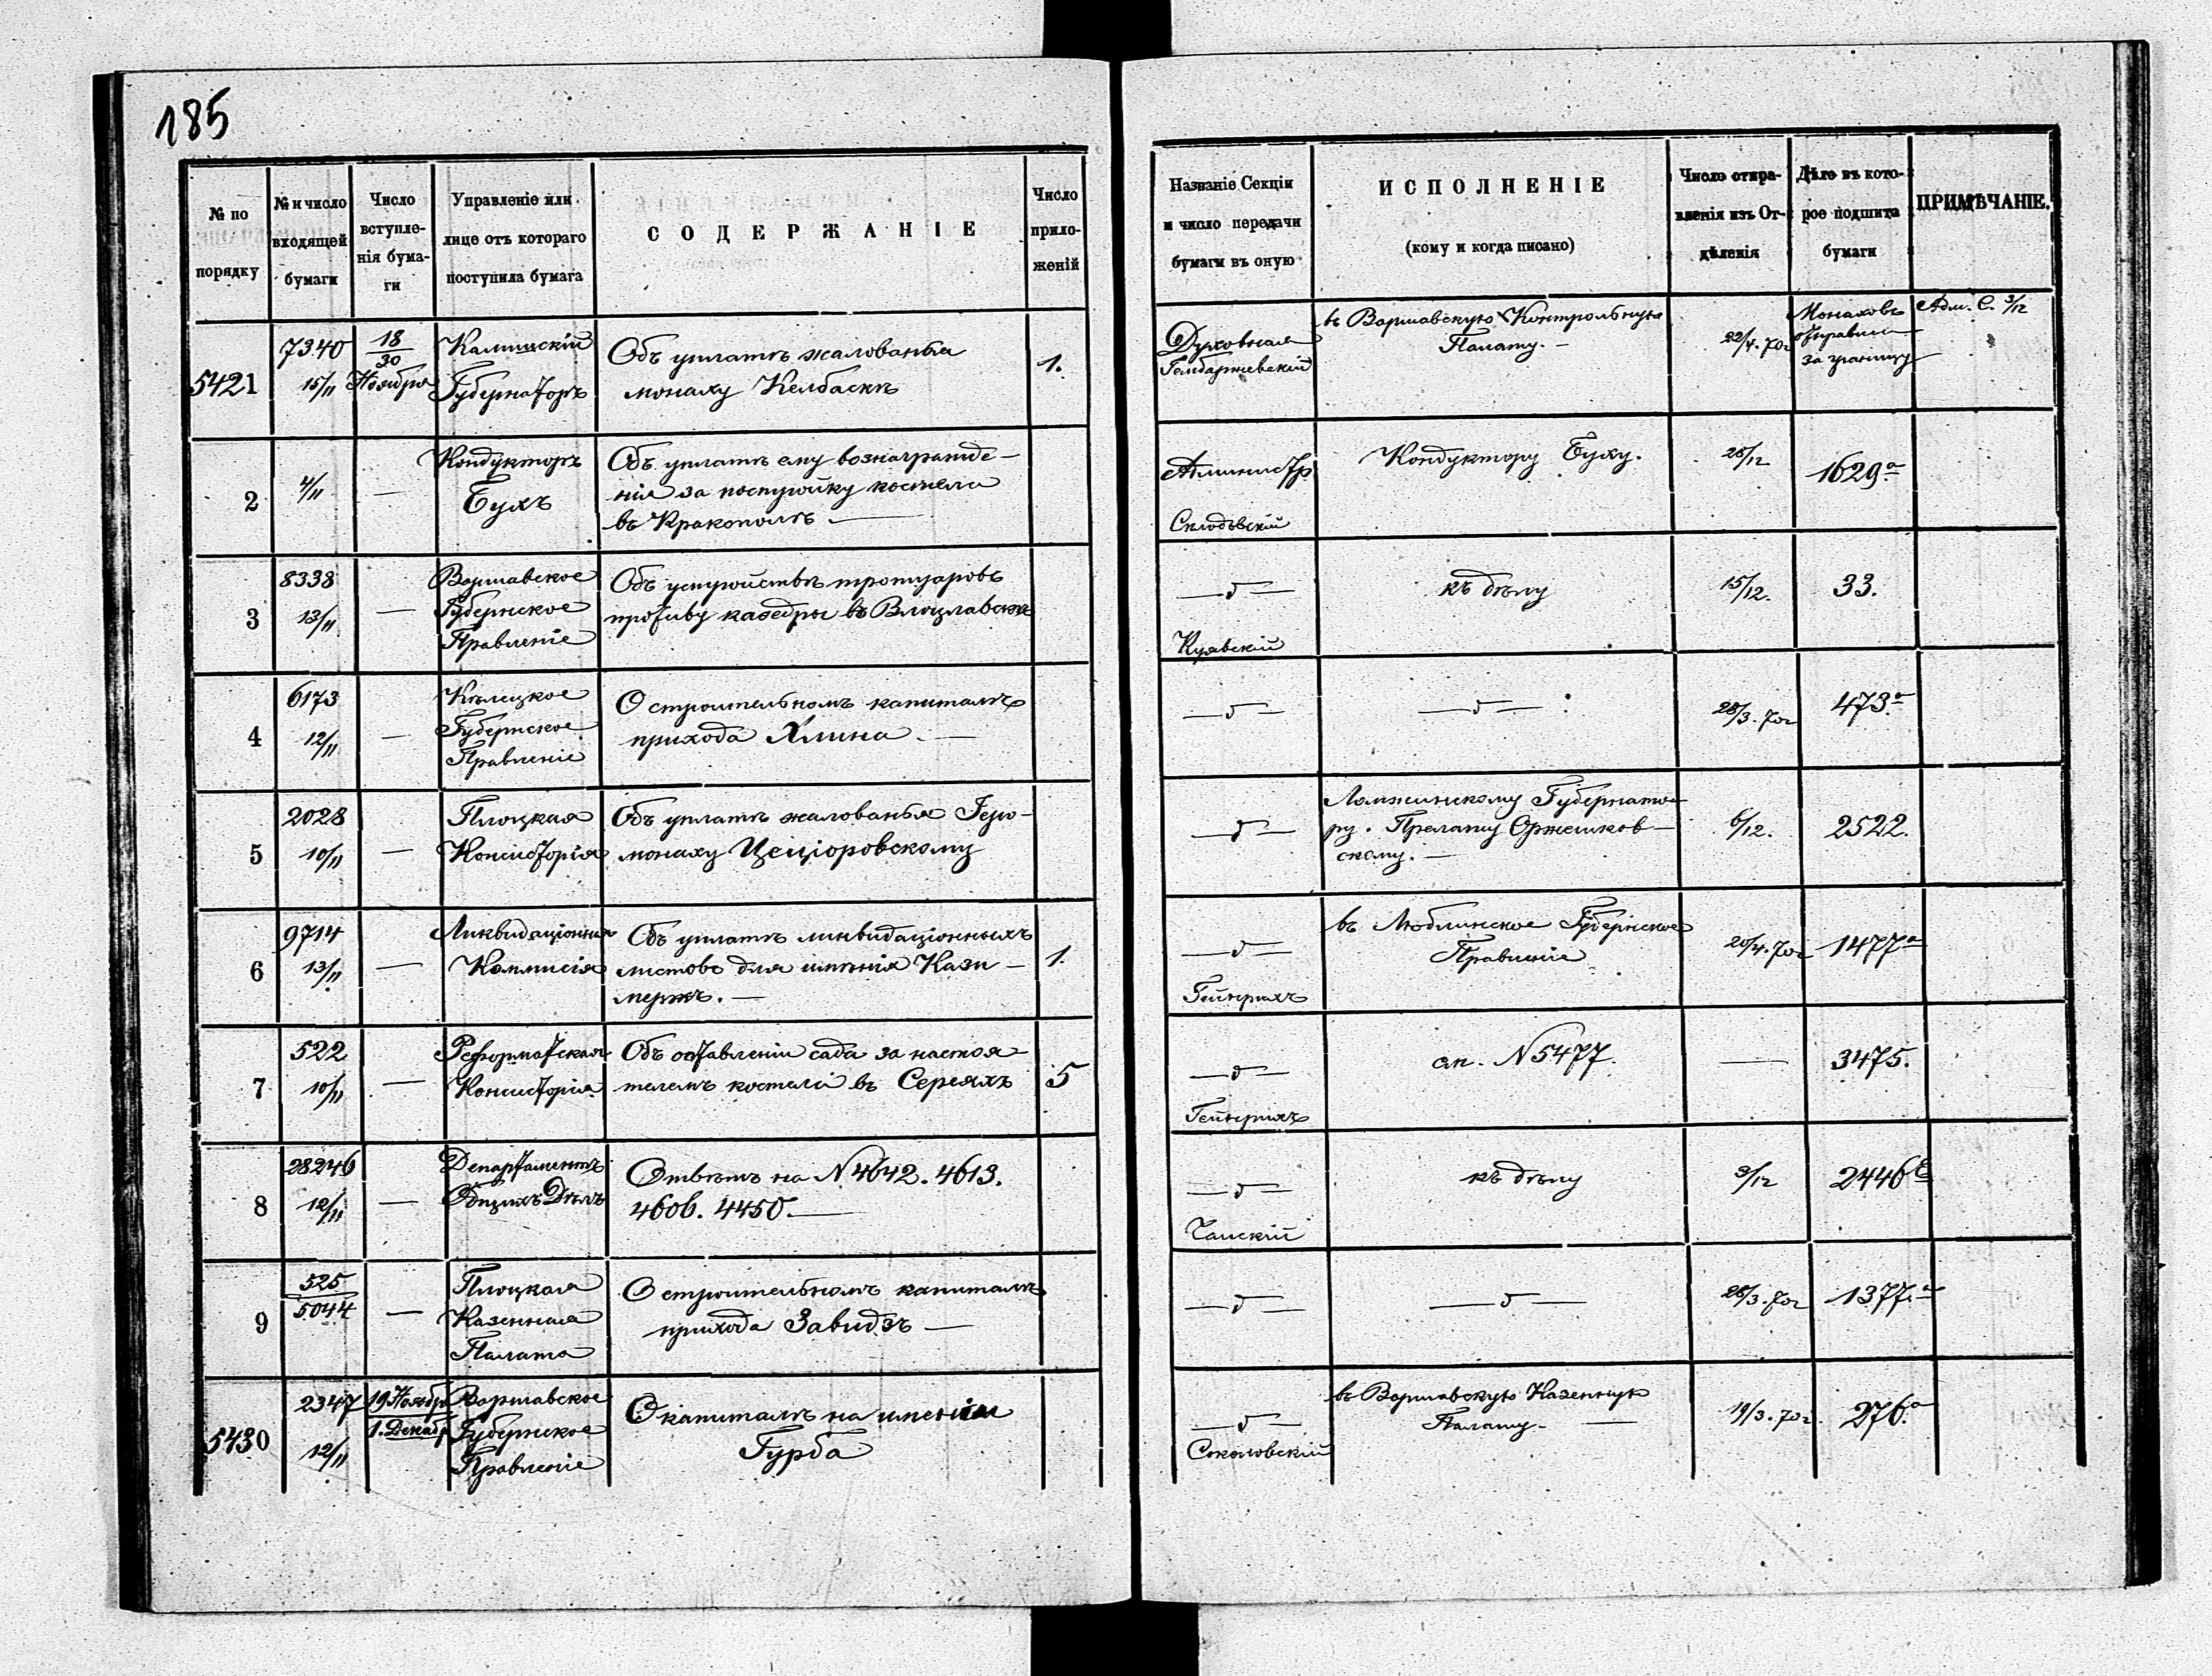 185
№ по
порядку
№ и число
входящей
бумаги
Число
вступле-
нія бума-
ги
Управленіе или
лице отъ котораго
поступила бумага
СОДЕРЖАНІЕ
Число
прило-
женій
Названіе Секціи
и число передачи
бумаги въ оную
ИСПОЛНЕНІЕ
(кому и когда писано)
Число отпра-
вленія изъ От-
дѣленія
Дѣло въ кото-
рое подшита
бумаги
ПРИМѢЧАНІЕ.
5421
7340
15/11
18/30
Ноября
Калишскій
Губернаторъ
Объ уплатѣ жалованья
монаху Келбаскѣ
1.
Духовная
въ Варшавскую Контрольную
Палату. —
22/4. 70г
Монаховъ
за границу
Адм. С. 3/12
2
4/11
—
Кондукторъ
Бухъ
Объ уплатѣ ему вознагражде-
нія за постройку костела
въ Краκополѣ —
Администр
Склодовскій
Кондуктору Буху.
28/12
1629.а
3
8338
13/11
—
Варшавское
Губернское
Правленіе
Объ устройствѣ тротуаровъ
противу каѳедры въ Влоцлавскѣ
—д—
Куявскій
къ дѣлу
15/12.
33.
4
6173
12/11
—
Кѣлецкое
Губернское
Правленіе
О строительномъ капиталѣ
прихода Хлина —
—д—
—д—
28/3. 70г
473.а
5
2028
10/11
—
Плоцкая
Консисторія
Объ уплатѣ жалованья Іеро-
монаху Цеціоровскому
—д—
Ломжинскому Губернато-
ру. Прелату Оржешков-
скому. —
6/12.
2522.
6
9714
13/11
—
Ликвидаціонная
Коммисія
Объ уплатѣ ликвидаціонныхъ
листовъ для имѣнія Кази-
мержъ. —
1.
—д—
Гейнрихъ
въ Люблинское Губернское
Правленіе
20/4. 70г
1477а
7
522
10/11
—
Реформатская
Консисторія.
Объ оставленіи сада за настоя-
телемъ костела въ Сереяхъ
5
—д—
Гейнрихъ
сл. N 5477.
—
3475.
8
28246
12/11
—
Департаментъ
Общихъ Дѣлъ
Отвѣтъ на N 4642. 4613.
4606. 4450. —
—д—
къ дѣлу
9/12
2446
9
525
5044
—
Плоцкая
Казенная
Палата
О строительномъ капиталѣ
прихода Завидзъ —
—д—
—д—
28/3. 70г
1377.а
5430
2347
12/11
19 Ноябр
1. Декабр
Варшавское
Губернское
Правленіе
О капиталѣ на имѣніи
Гурба
—д—
Соколовскій
въ Варшавскую Казенную
Палату. —
19/3. 70г.
276.а